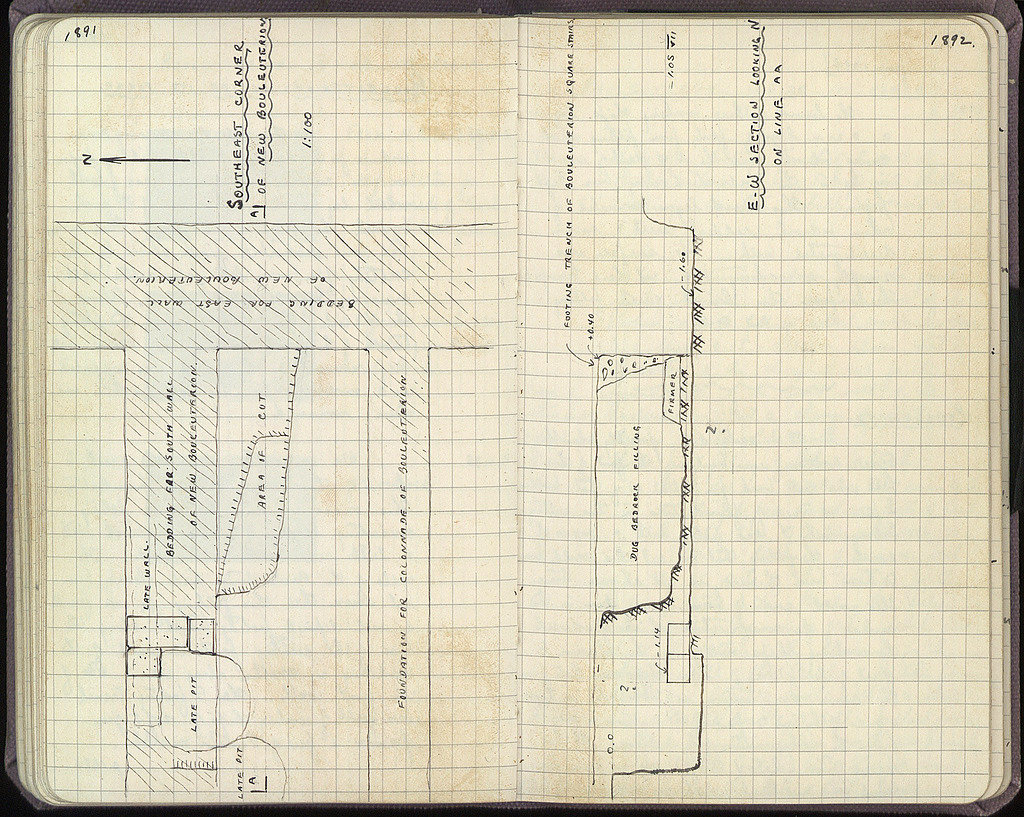 1891
N
SOUTHEAST CORNER
OF NEW BOULEUTERION
1:100
A
BEDDING FOR EAST WALL
OF NEW BOULEUTERION.
BEDDING FOR SOUTH WALL
OF NEW BOULEUTERION.
LATE WALL.
AREA OF CUT
FOUNDATION FOR COLONNADE OF BOULEUTERION
LATE PIT
LATE PIT
A
1892
E-W SECTION LOOKING N
ON LINE AA
-1.05 VII
FOOTING TRENCH OF BOULEUTERION SQUARE STAIRS
+0.40
-1.60
FIRMER
DUG BEDROCK FILLING
2.
-1.14
2.
0.0